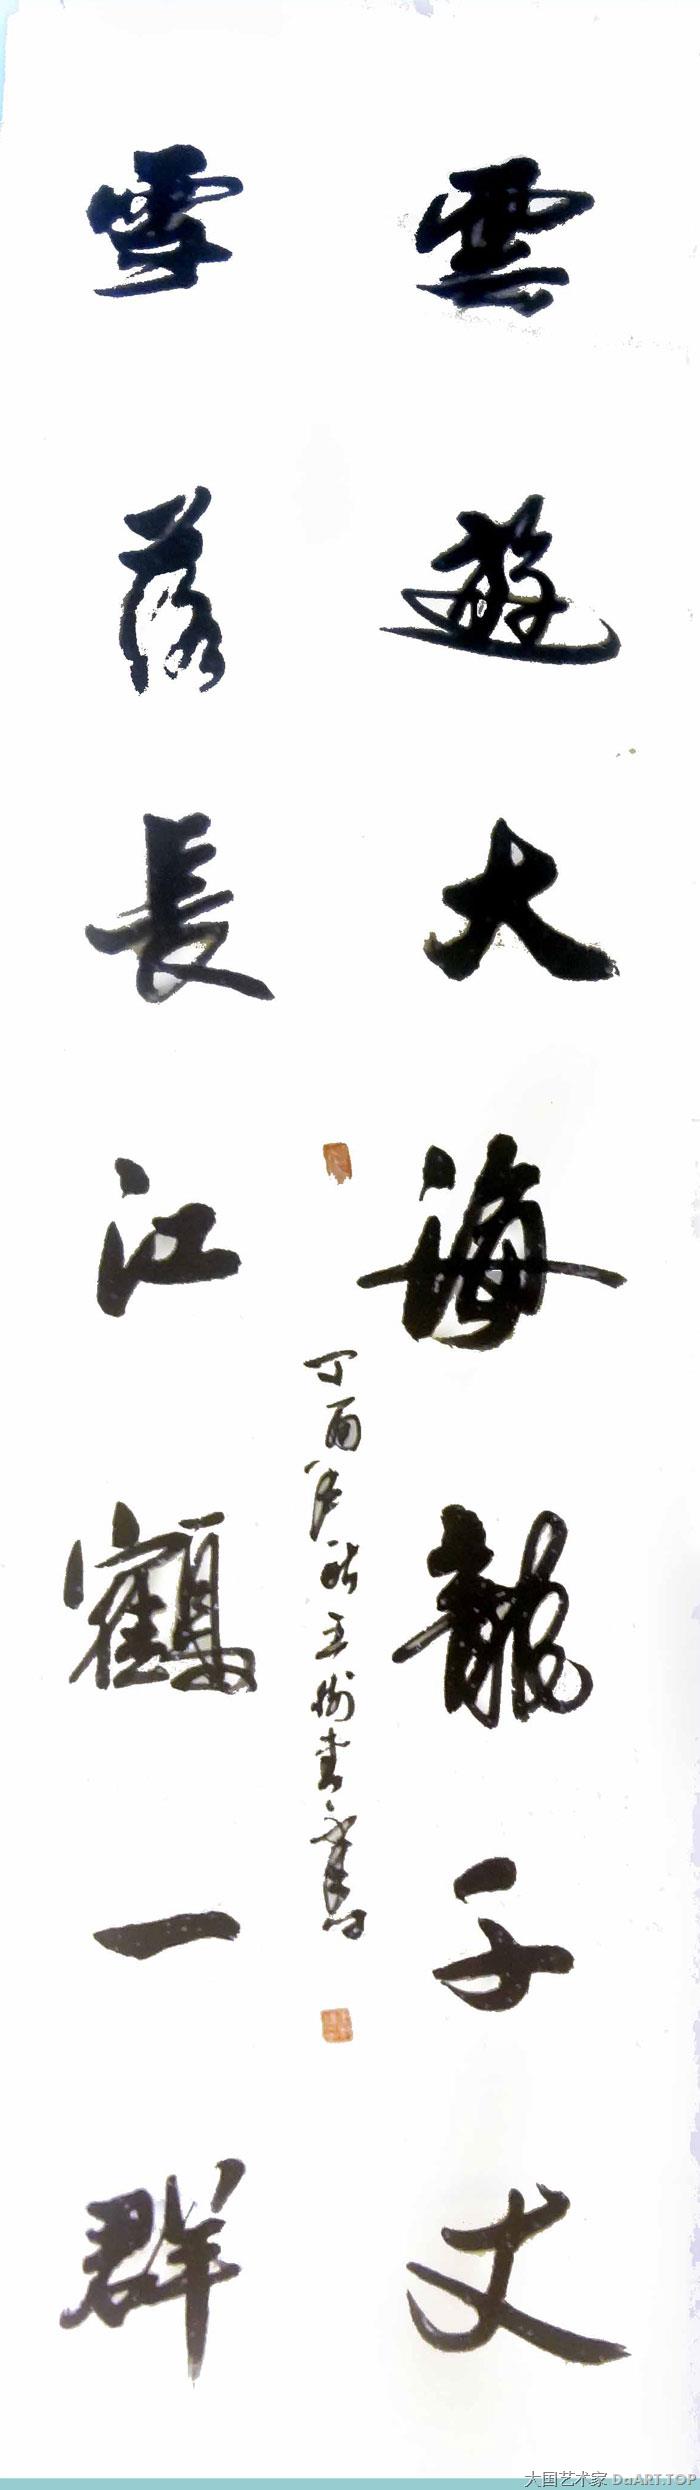 雲遊大海龍千丈
雪落長江鶴一群
丁酉年秋王樹書
大国艺术家 DaART.TOP